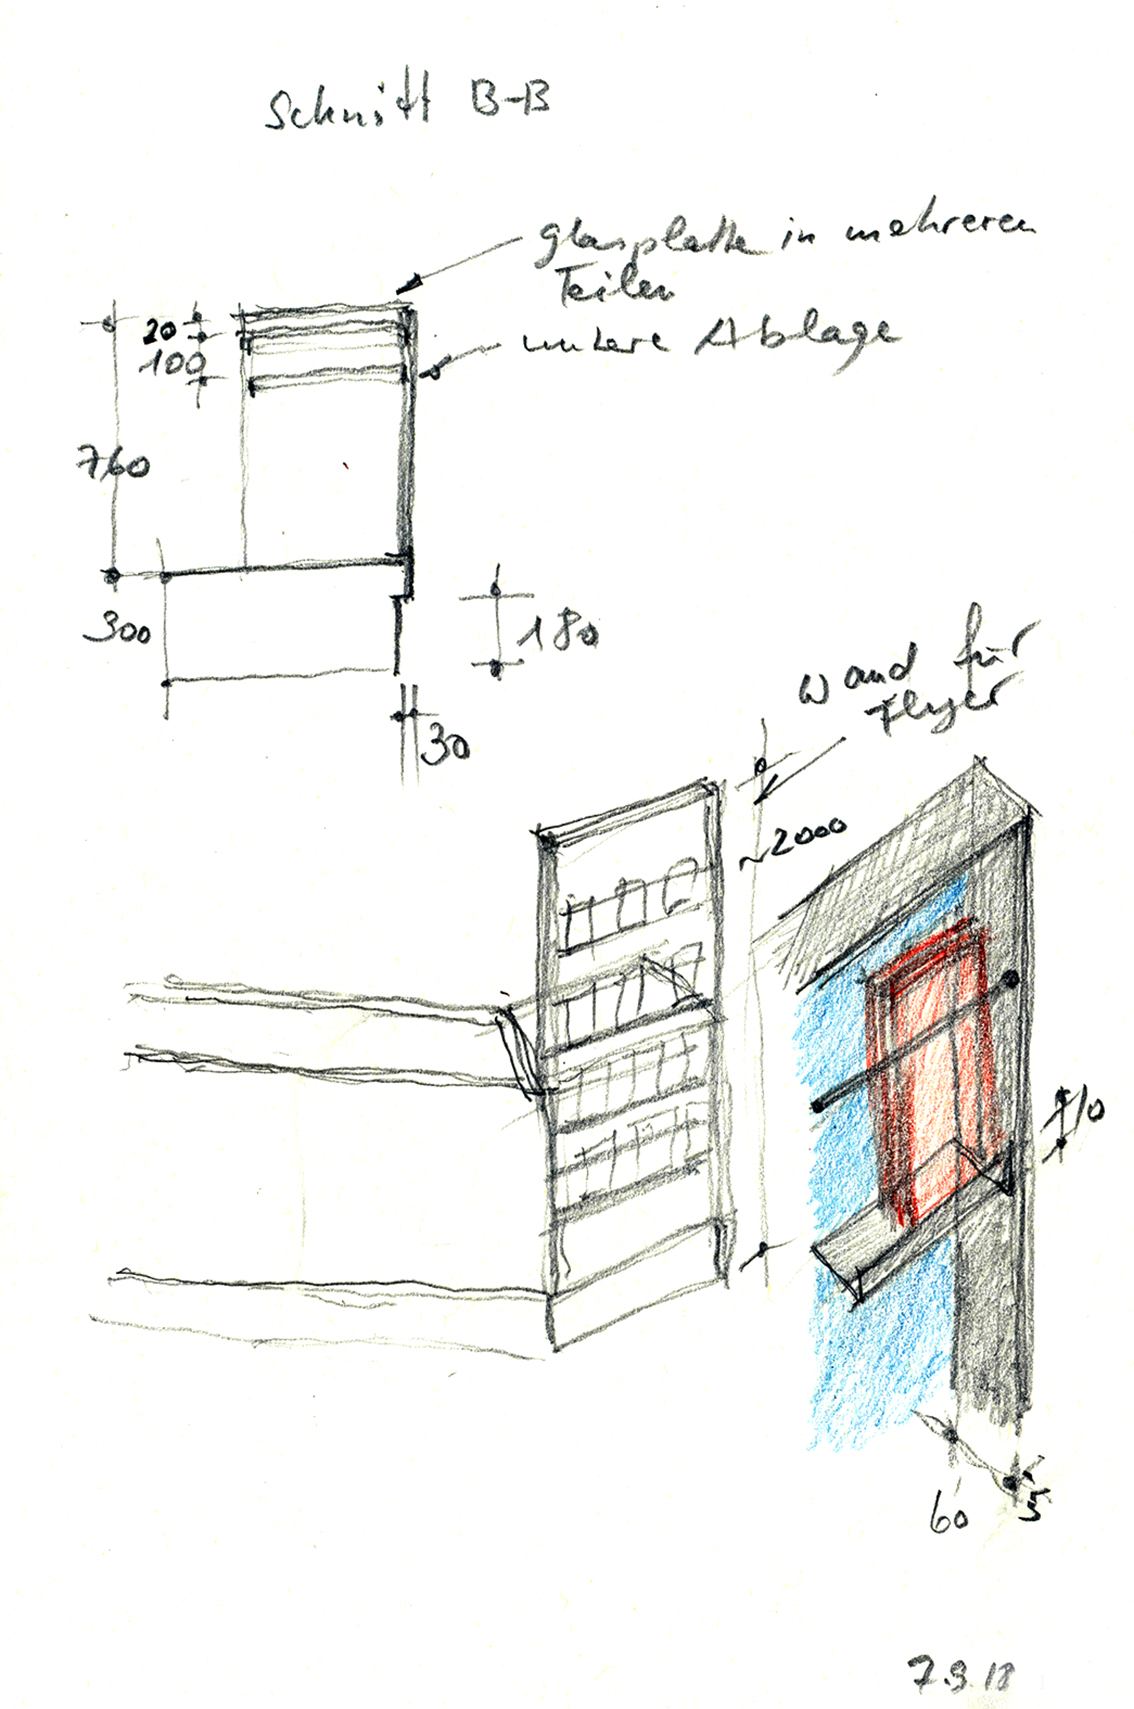 Schnitt B-B
Glasplatte in mehreren
Teilen
untere Ablage
20
100
760
300
180
30
Wand für
Flyer
~2000
60
5
7.9.18